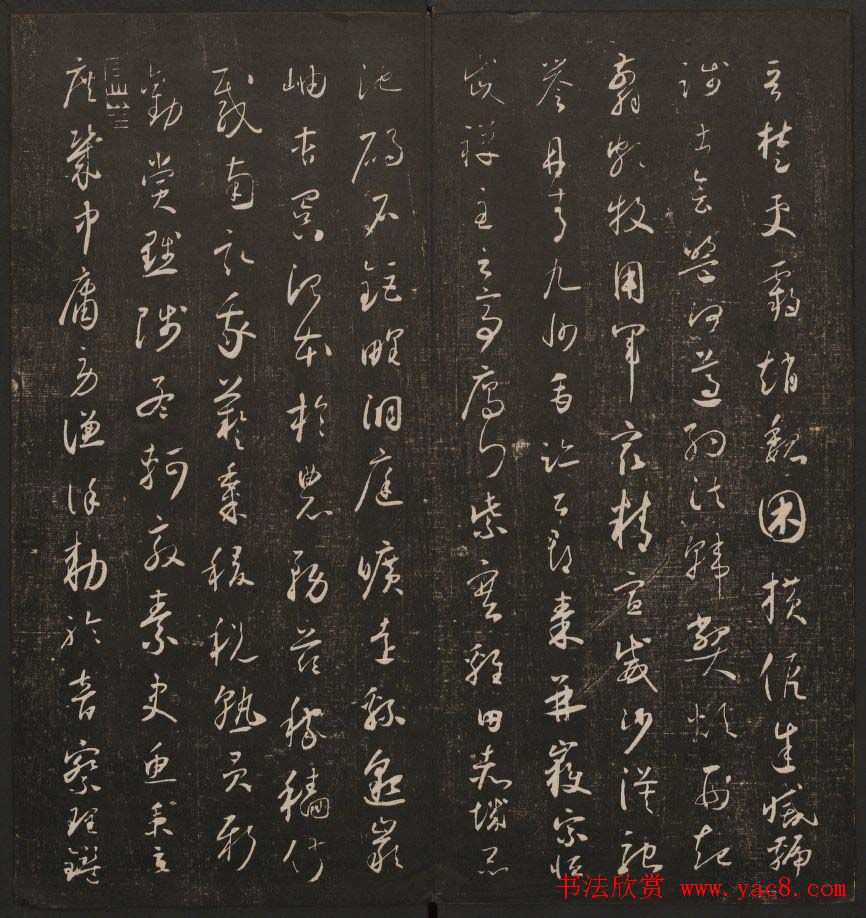 晉楚更霸趙魏困橫假途滅虢
踐土會盟何遵約法韓弊煩刑起
翦頗牧用軍最精宣威沙漠馳
譽丹青九州禹跡百郡秦并嶽宗恒
岱禪主云亭雁門紫塞雞田赤城昆
池碣石鉅野洞庭曠遠綿邈巖
岫杳冥治本於農務茲稼穡俶
載南畝我藝黍稷稅熟貢新
勸賞黜陟孟軻敦素史魚秉直
庶幾中庸勞謙謹勅聆音察理鑑
书法欣赏 www.yac8.com